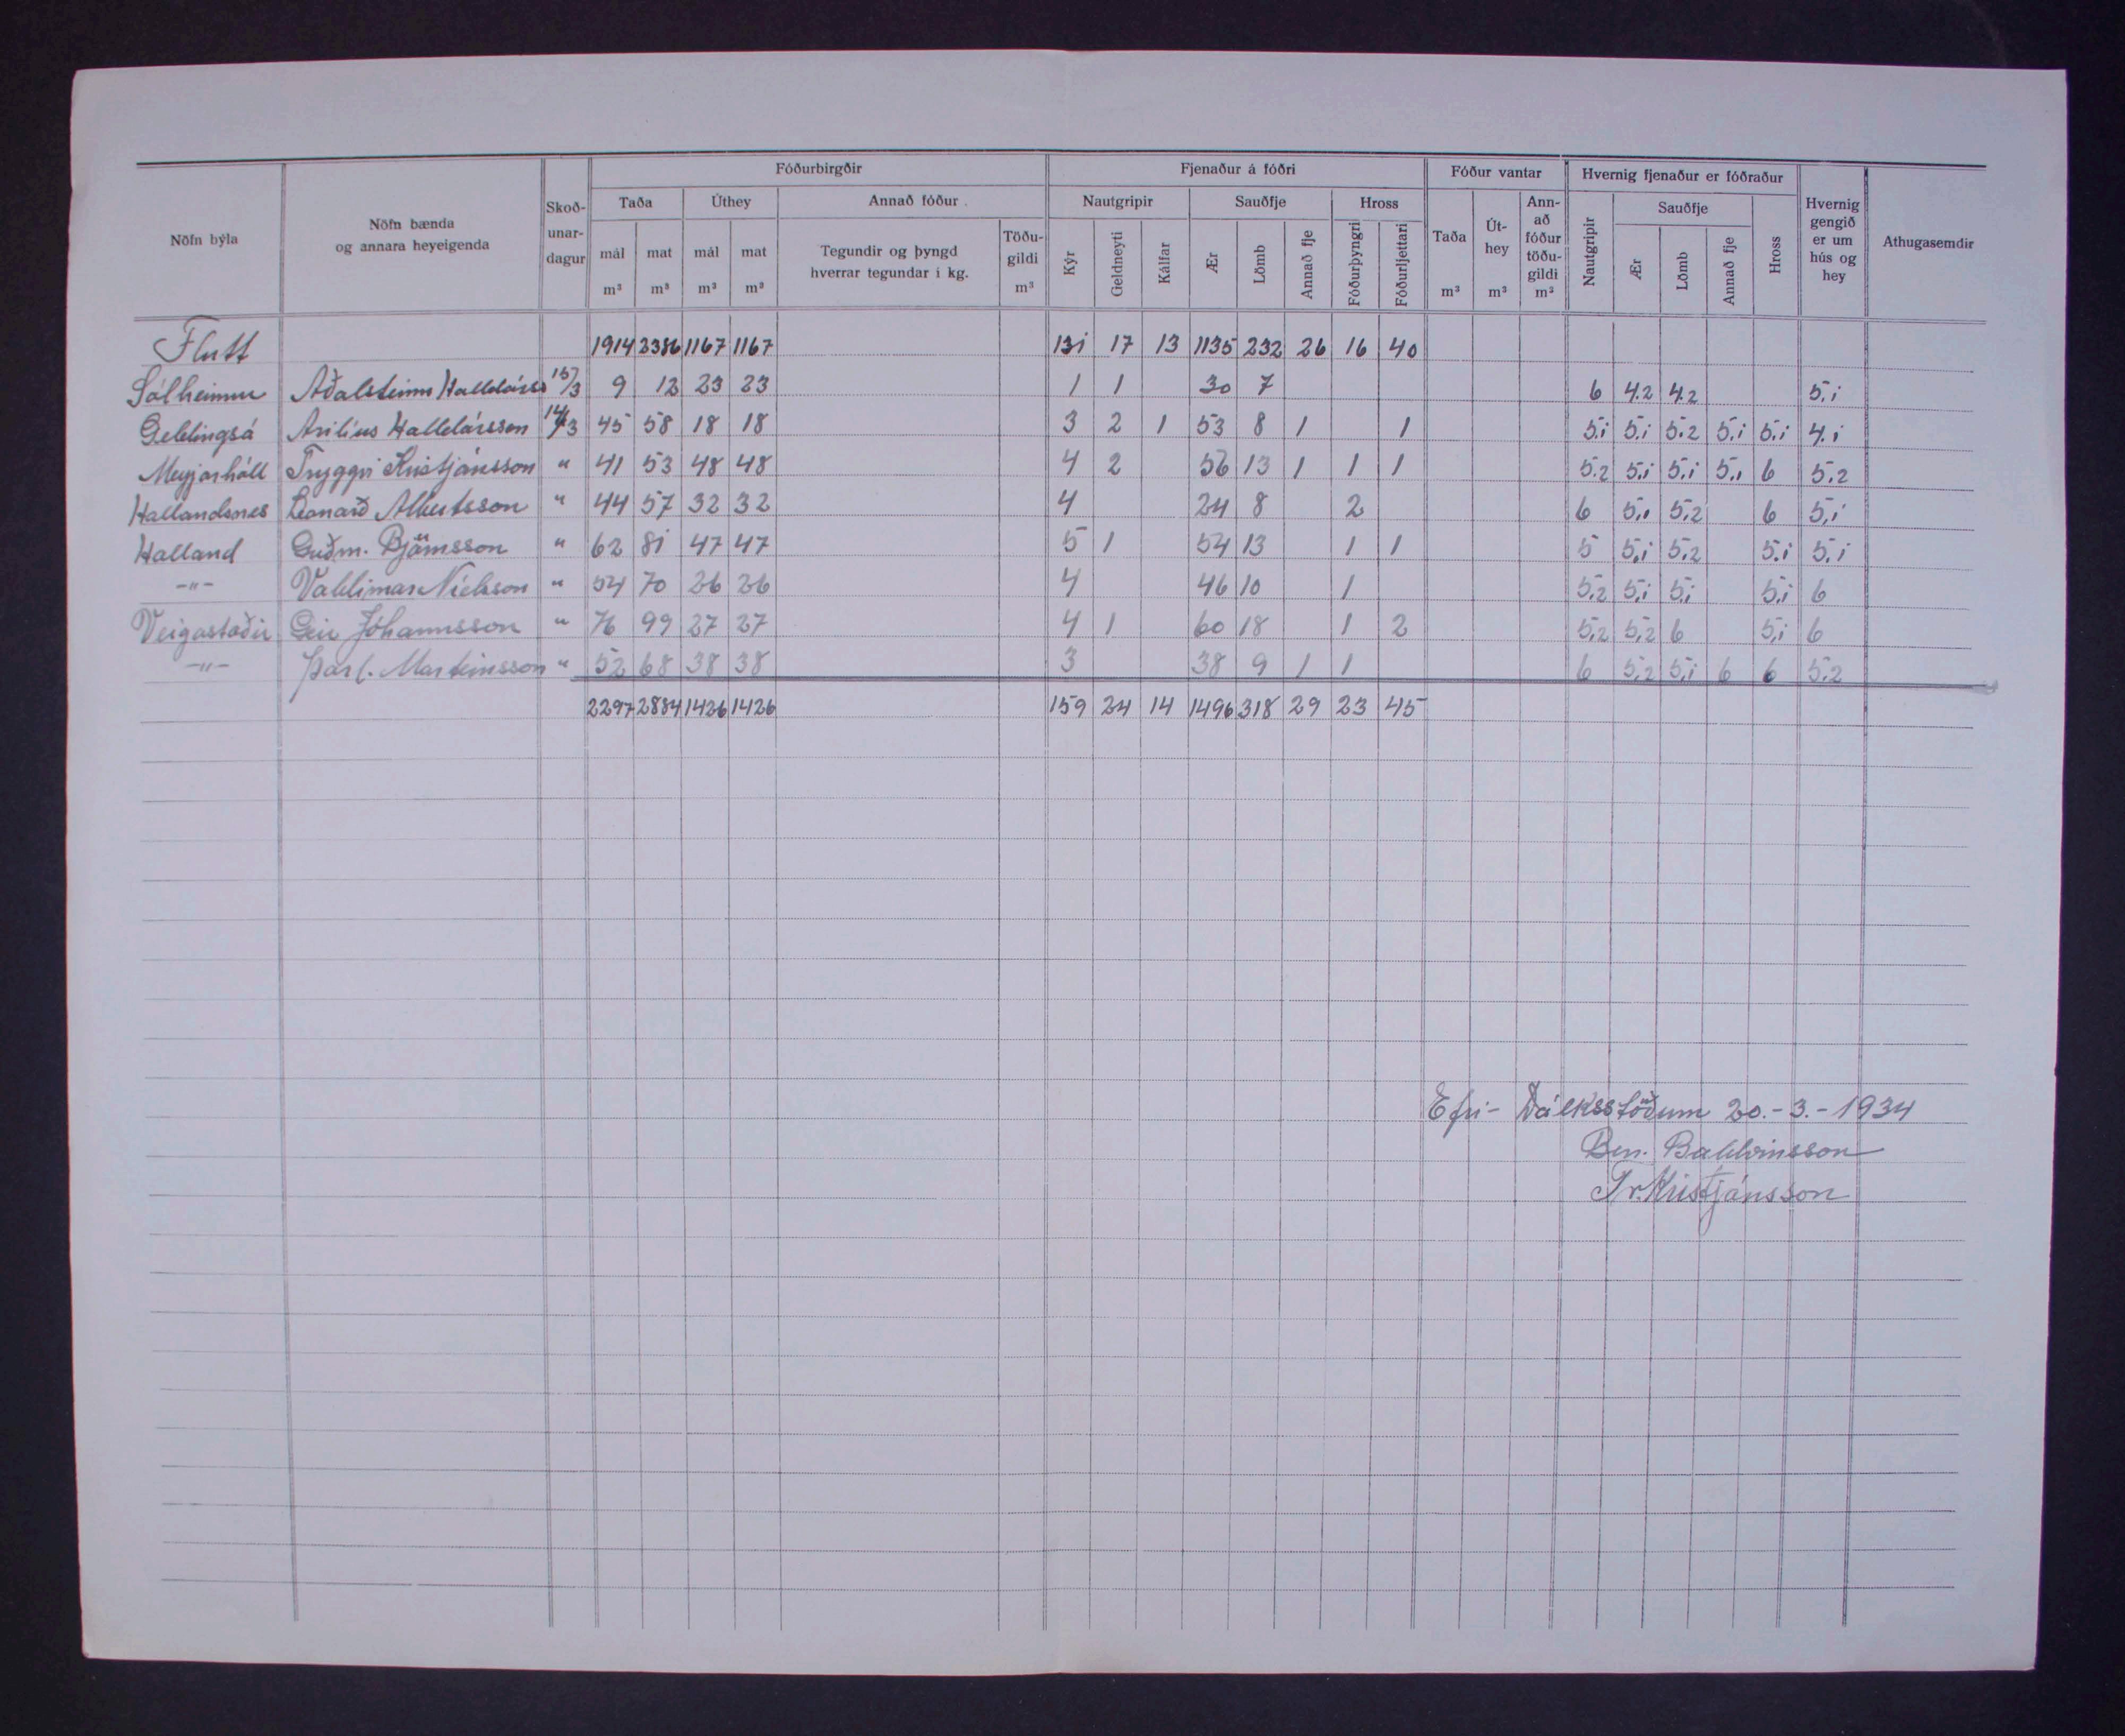 Fóðurbirgðir Fjenaður á fóðri Fóður vantar Hvernig fjenaður er fóðraður
Nöfn býla Nöfn bænda og annara heyeigenda Skoð-unar-dagur Taða Úthey Annað fóður Nautgripir Sauðfje Hross Taða Út-hey Ann-að fóður töðu-gildi Nautgripir Sauðfje Hross Hvernig gengið er um hús og hey Athugasemdir
mál m³ mat m³ mál m³ mat m³ Tegundir og þyngd hverrar tegundar í kg. Töðu-gildi m³ Kýr Geldneyti Kálfar Ær Lömb Annað fje Fóðurþyngri Fóðurljettari m³ m³ m³ Ær Lömb Annað fje
Flutt 1914 2386 1167 1167 131 17 13 1135 232 26 16 40
Sólheimar Aðalsteinn Halldórss 15/3 9 12 23 23 1 1 30 7 6 4.2 4.2 5.1
Geldingsá Arilíus Halldórsson 14/3 45 58 18 18 3 2 1 53 8 1 1 5.1 5.1 5.2 5.1 5.1 4.1
Meyjarhóll Tryggvi Kristjánsson " 41 53 48 48 4 2 56 13 1 1 1 5.2 5.1 5.1 5.1 6 5.2
Hallandsnes Leonarð Albertsson " 44 57 32 32 4 24 8 2 6 5.1 5.2 6 5.1
Halland Guðm. Björnsson " 62 81 47 47 5 1 54 13 1 1 5 5.1 5.2 5.1 5.1
-"- Valdimar Níelsson " 54 70 26 26 4 46 10 1 5.2 5.1 5.1 5.1 6
Veigastaðir Geir Jóhannsson " 76 99 27 27 4 1 60 18 1 2 5.2 5.2 6 5.1 6
-"- Þorl. Marteinsson " 52 68 38 38 3 38 9 1 1 6 5.2 5.1 6 6 5.2
2297 2884 1426 1426 159 24 14 1496 318 29 23 45
Efri-Dálksstöðum 20.-3.-1934
Ben. Baldvinsson
Tr. Kristjánsson